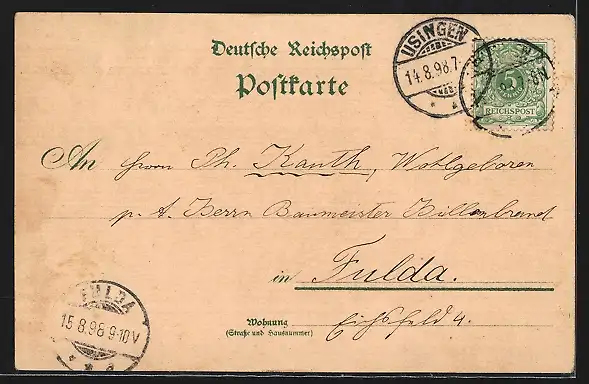 Deutsche Reichspost
Postkarte
USINGEN
14.8.98.7-
5
REICHSPOST
An Herrn Ph. Kauth, Wohlgeboren
p. A. Herrn Baumeister Hillenbrand
in Fulda.
Wohnung
(Straße und Hausnummer)
Eichsfeld 4.
FULDA
15.8.98.9-10V